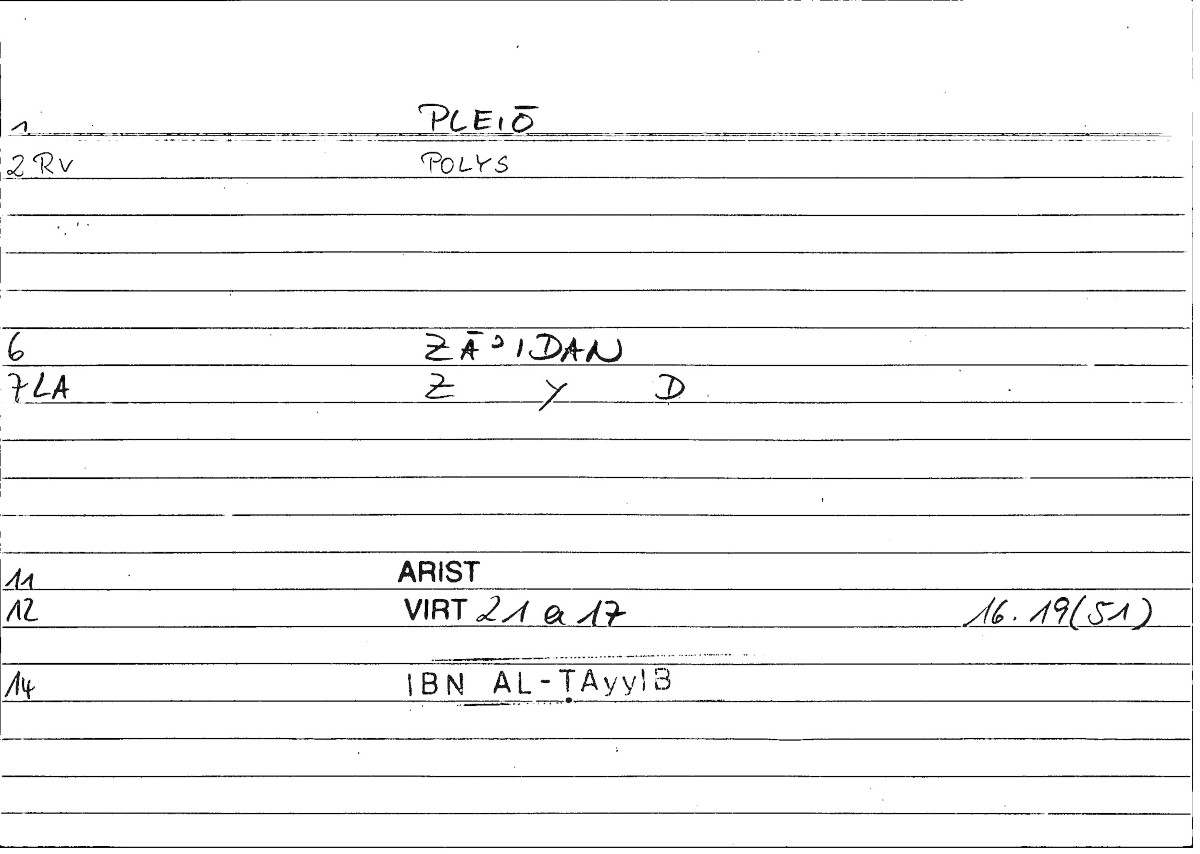 1 PLEIŌ
2 RV POLYS
6 ZĀʾIDAN
7 LA Z Y D
11 ARIST
12 VIRT 21 a 17 16.19(51)
14 IBN AL-ṬAyyIB